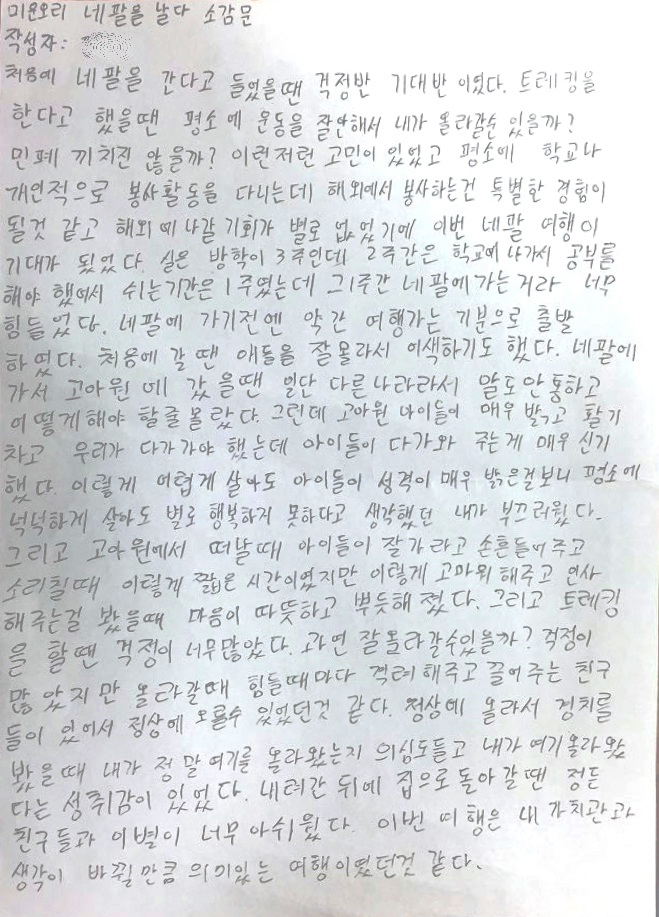 미운오리 네팔을 날다 소감문
작성자:
처음에 네팔을 간다고 들었을땐 걱정반 기대반 이였다. 트레킹을
한다고 했을땐 평소에 운동을 잘안해서 내가 올라갈순 있을까?
민폐 끼치진 않을까? 이런저런 고민이 있었고 평소에 학교나
개인적으로 봉사활동을 다니는데 해외에서 봉사하는건 특별한 경험이
될것 같고 해외에 나갈 기회가 별로 없었기에 이번 네팔 여행이
기대가 됬었다. 실은 방학이 3주인데 2주간은 학교에 나가서 공부를
해야 했어서 쉬는기간은 1주였는데 그1주간 네팔에가는거라 너무
힘들었다. 네팔에 가기전엔 약간 여행가는 기분으로 출발
하였다. 처음에 갈 땐 애들을 잘몰라서 어색하기도 했다. 네팔에
가서 고아원에 갔을땐 일단 다른나라라서 말도안통하고
어떻게해야 할줄몰랐다. 그런데 고아원 아이들이 매우 밝고 활기
차고 우리가 다가가야 했는데 아이들이 다가와 주는게 매우 신기
했다. 이렇게 어렵게 살아도 아이들이 성격이 매우 밝은걸보니 평소에
넉넉하게 살아도 별로 행복하지 못하다고 생각했던 내가 부끄러웠다.
그리고 고아원에서 떠날때 아이들이 잘가라고 손흔들어주고
소리칠때 이렇게 짧은 시간이였지만 이렇게 고마워 해주고 인사
해주는걸 봤을때 마음이 따뜻하고 뿌듯해졌다. 그리고 트레킹
을 할땐 걱정이 너무많았다. 과연 잘올라갈수있을까? 걱정이
많았지만 올라갈때 힘들때마다 격려해주고 끌어주는 친구
들이 있어서 정상에 오를수 있었던것 같다. 정상에 올라서 경치를
봤을때 내가 정말여기를 올라왔는지 의심도들고 내가여기올라왔
다는 성취감이 있었다. 내려간 뒤에 집으로돌아갈땐 정든
친구들과 이별이 너무 아쉬웠다. 이번 여행은 내 가치관과
생각이 바뀔만큼 의미있는 여행이였던것 같다.